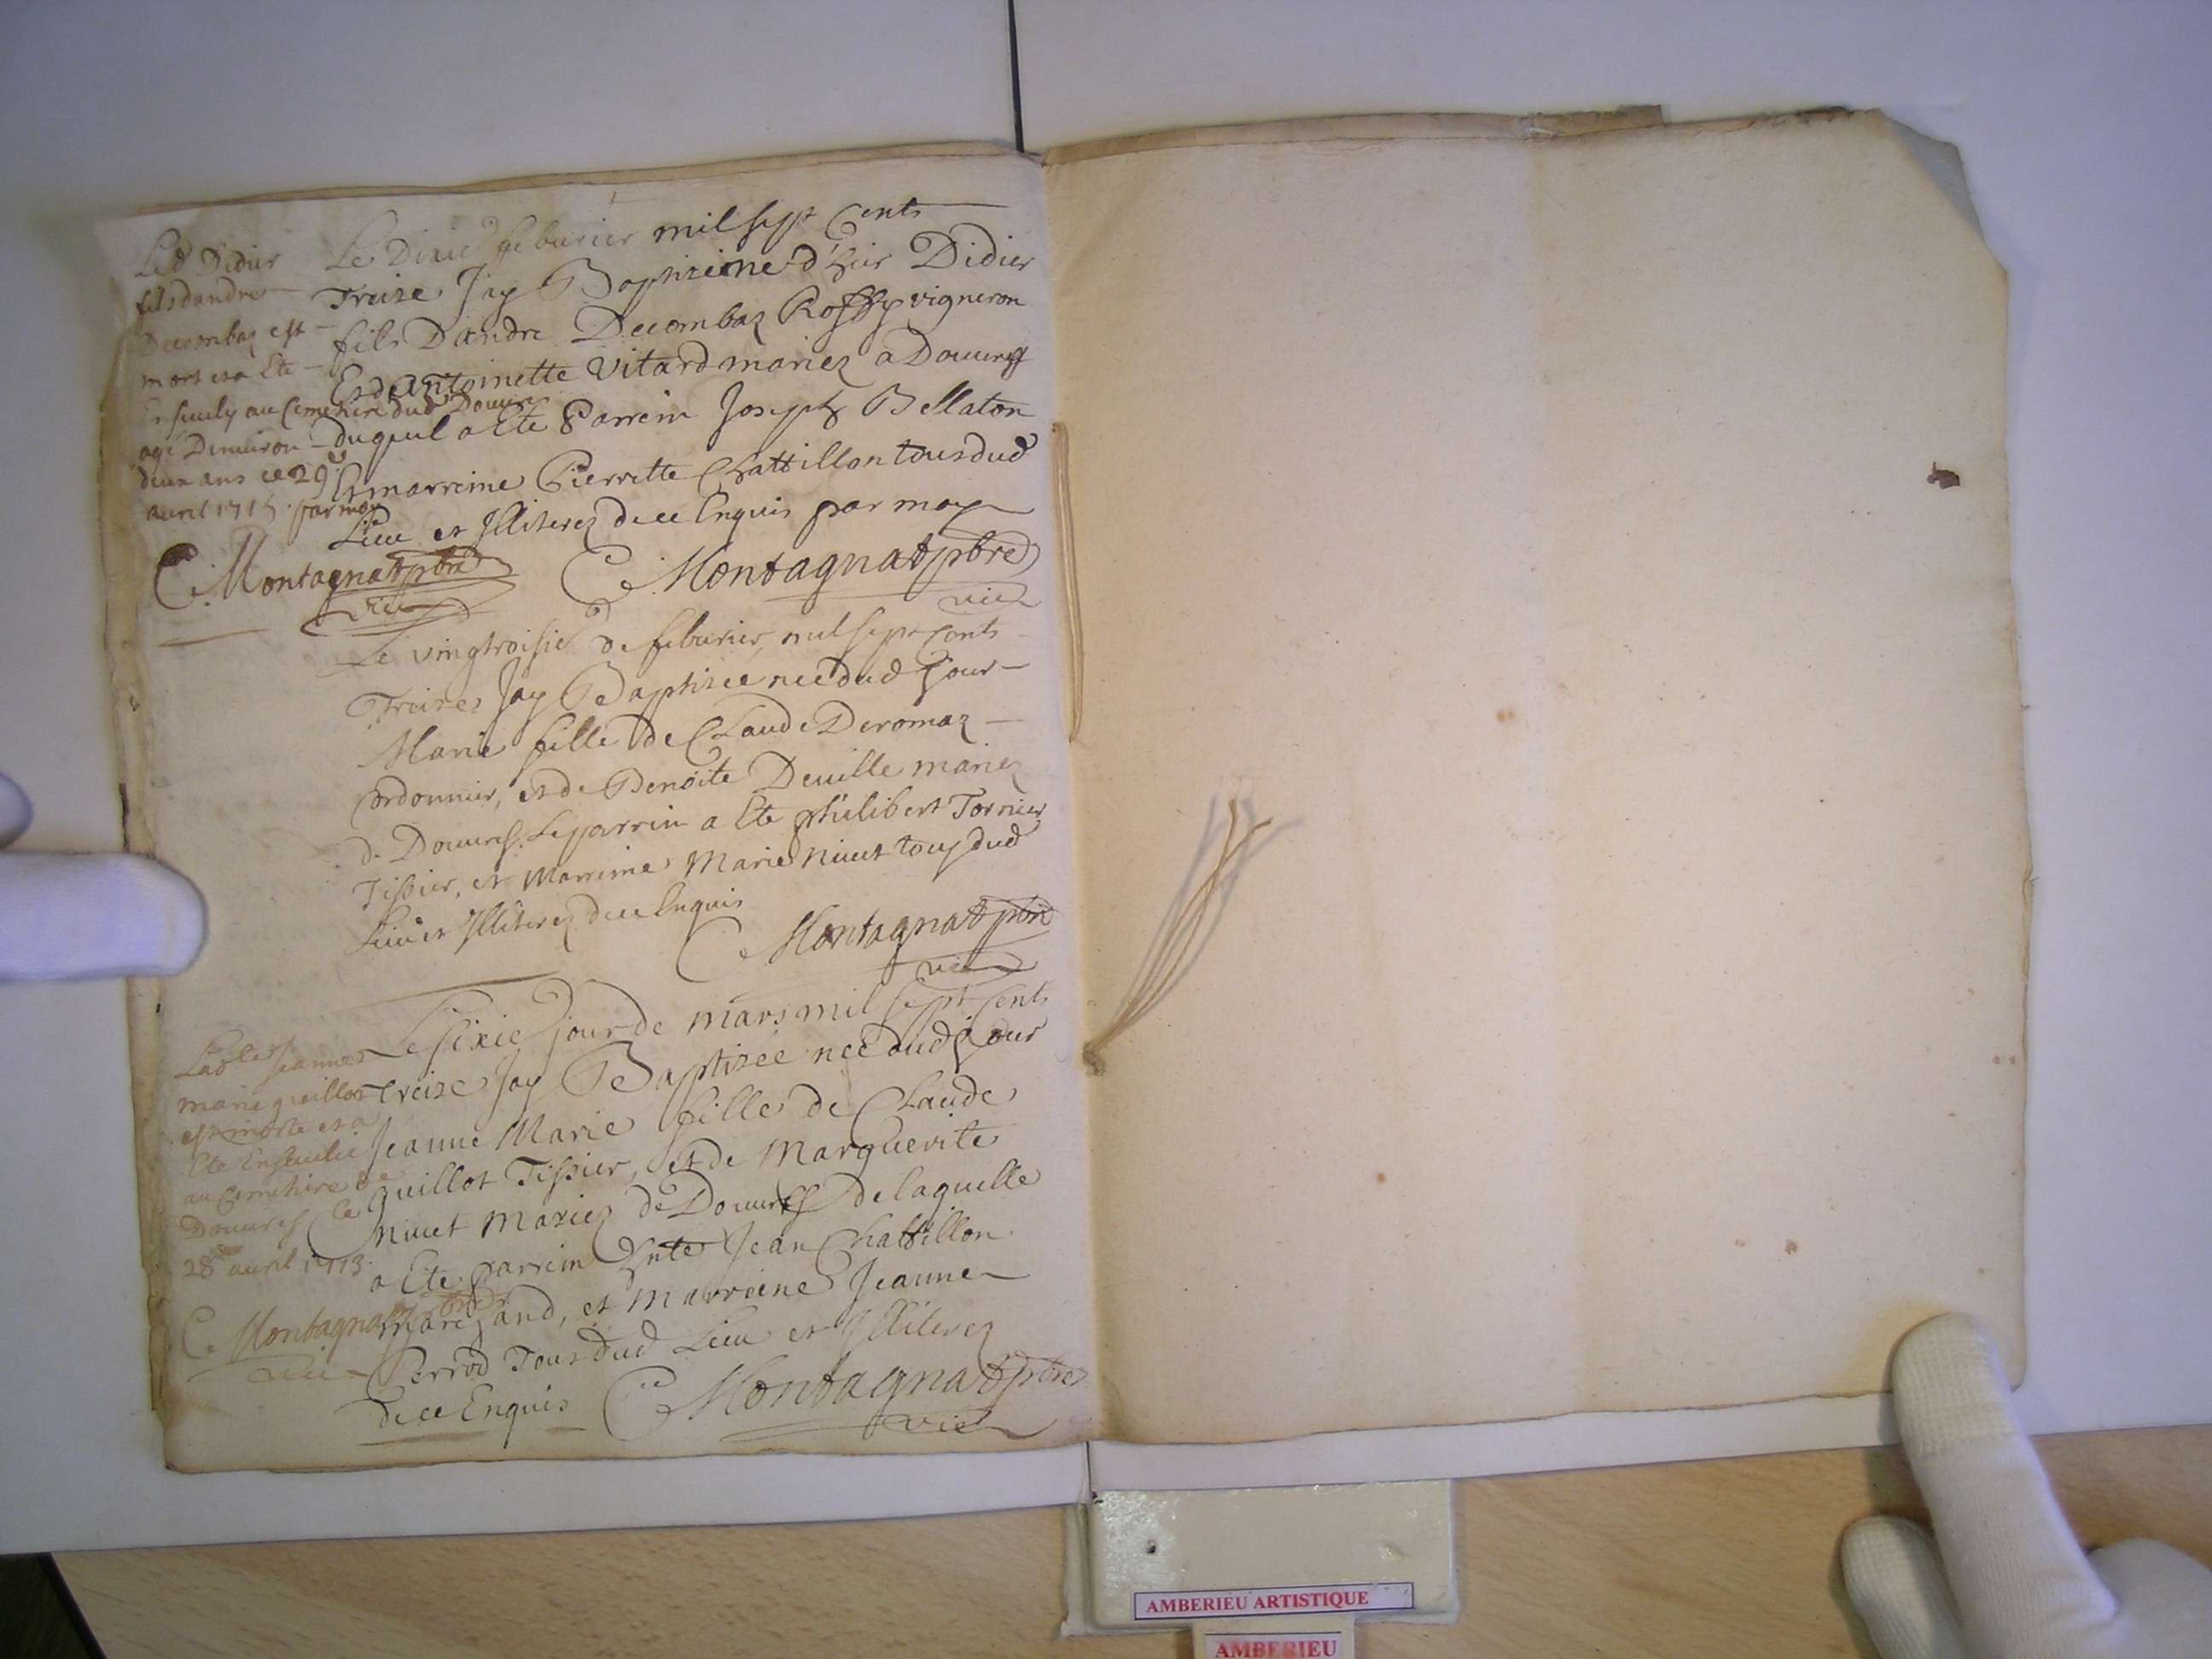 Led Didier
fils dandre
Decombaz est
mort et a Ete
Ensevely au Cemetiere dud Douvre
agé Denuiron
deux ans ce 29e
auril 1715 par moy
C. Montagnat pbre
vic
Le Dixie feburier mil sept Cents
Treize Jay Baptizé né d'hier Didier
fils Dandre Decombaz Roffy vigneron
Et de Antoinette Vitard mariez a Douures
duquel a Ete Parrein Joseph Bellaton
Et marreine Pierrette Chattillon tous dud
Lieu et Jlliterez de ce Enquis par moy
C. Montagnat pbre
vic
Le vingtroisie de feburier, mil sept Cents
Treize Jay Baptizée née dud Jour
Marie fille de Claude Deromaz
Cordonnier, et de Benoite Deuille mariez
de Douures. Le parrein a Ete philibert Tornier
Tissier, et Marreine Marie Niuet tous dud
Lieu et Jlliterez de ce Enquis
C. Montagnat pbre
vic
Lad Jeanne
marie quillot
est morte et a
Ete Enseuelie
au Cemetiere de
Douures Ce
28e auril 1713.
C. Montagnat pbre
vic
Le sixie jour de mars mil sept Cents
Treize Jay Baptizée née dud Jour
Jeanne Marie fille de Claude
quillot Tissier, et de Marguerite
Niuet Mariez de Douures de laquelle
a Ete parrein Jean Chattillon
marchand, et marreine Jeanne
Perrod Tous dud Lieu et Jlliterez
de ce Enquis
C. Montagnat pbre
vic
AMBERIEU ARTISTIQUE
AMBERIEU